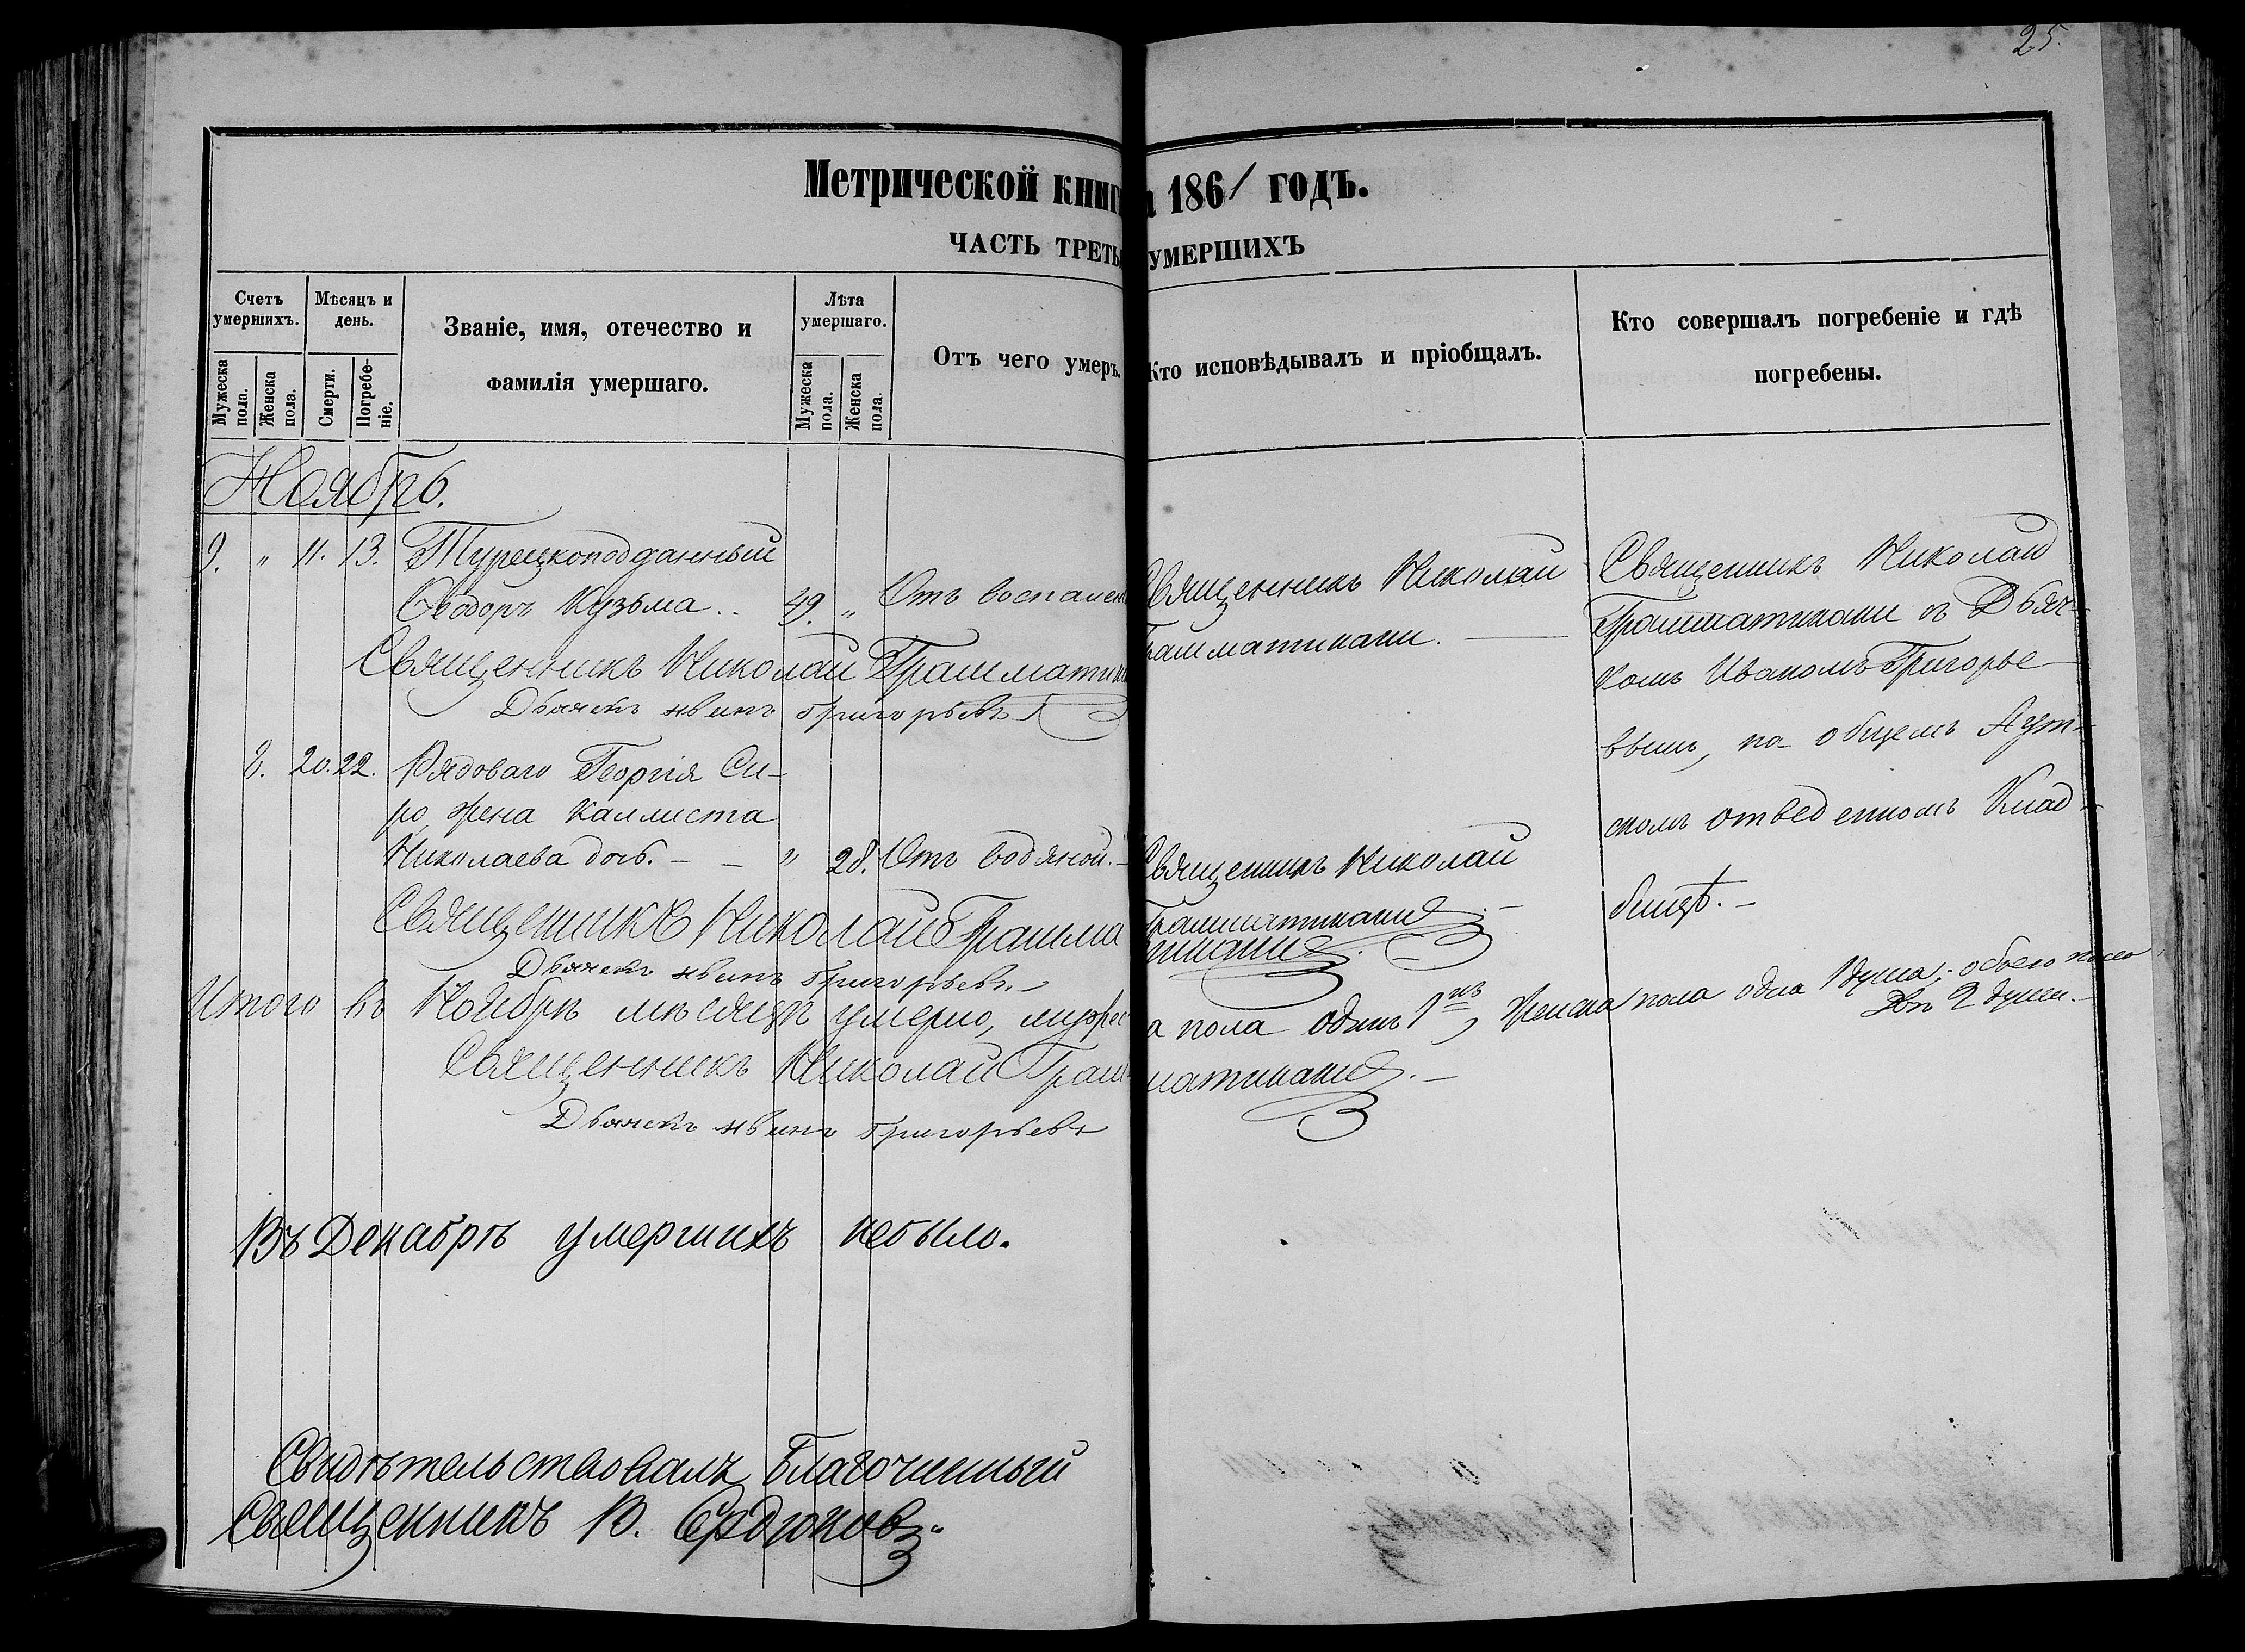 25.
Метрической книг а 1861 годъ.
ЧАСТЬ ТРЕТЬ УМЕРШИХЪ
Счетъ умершихъ.
Мужеска пола.
Женска пола.
Мѣсяцъ и день.
Смерти.
Погребеніе.
Званіе, имя, отечество и
фамилія умершаго.
Лѣта умершаго.
Мужеска пола.
Женска пола.
Отъ чего умеръ.
Кто исповѣдывалъ и пріобщалъ.
Кто совершалъ погребеніе и гдѣ
погребены.
Ноябрь.
9. " 11. 13. Турецкоподданный
Ѳеодоръ Кузьма .. 49. " Отъ воспален
Священникъ Николай
Грамматикати.
Священникъ Николай
Грамматикати съ Дьяч-
комъ Иваномъ Григорье-
вымъ, на общемъ Аут-
скомъ отведенномъ Клад-
бищѣ. -
Священникъ Николай Граммати
Дьячекъ Иванъ Григорьевъ
8. 20. 22. Рядоваго Георгія Си-
ро, жена Каллиста
Николаева дочь. - - " 28. Отъ водяной. -
Священникъ Николай
Грамматикати. -
Священникъ Николай Грамма тикати.
Дьячекъ Иванъ Григорьевъ. -
Итого въ Ноябрѣ мѣсяцѣ умерло, мужес а пола одинъ 1нъ, женска пола одна 1 душа; - обоего пола
двѣ 2 души. -
Священникъ Николай Грам матикати. -
Дьячекъ Иванъ Григорьевъ
Въ Декабрѣ умершихъ небыло.
Свидѣтельствовалъ Благочинный
Священникъ В. Сердюковъ.